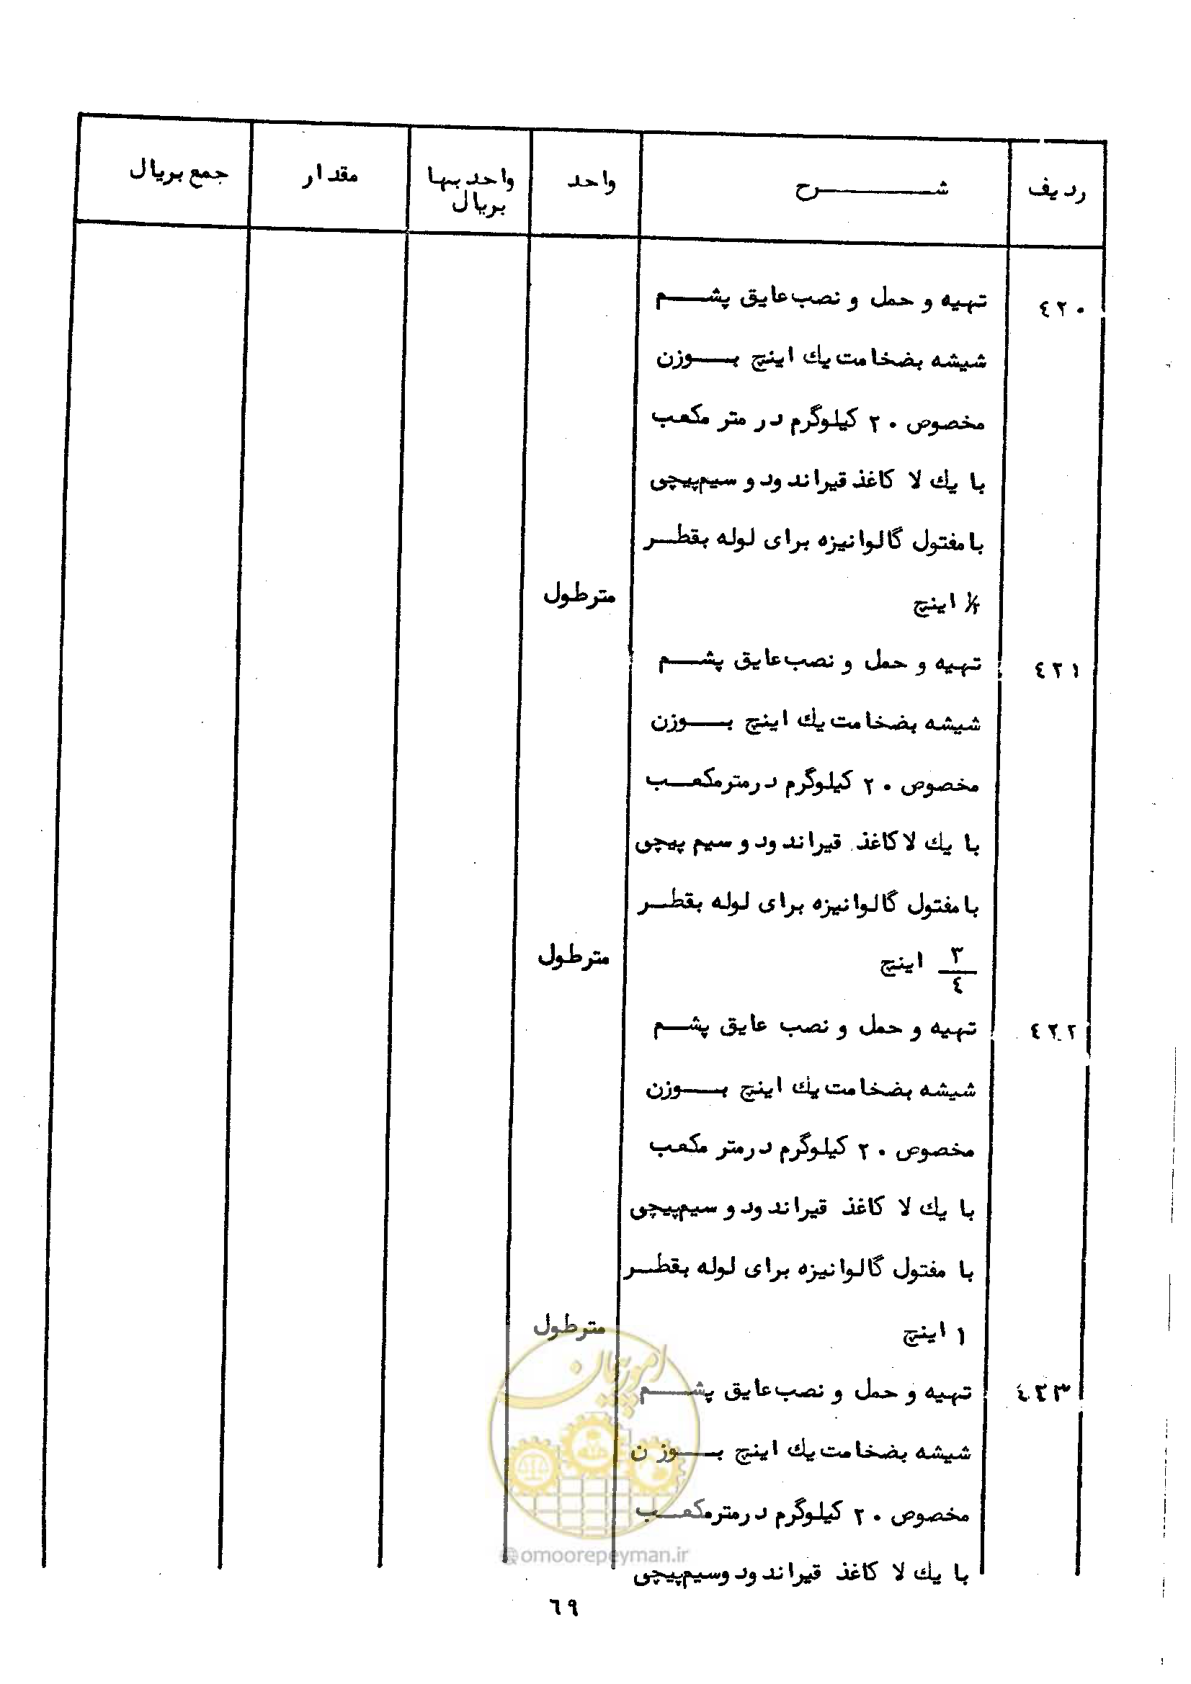 ردیف	شرح	واحد	واحد بها بریال	مقدار	جمع بریال
٤٢٠ تهیه و حمل و نصب عایق پشم
شیشه بضخامت یك اینچ بوزن
مخصوص ٢٠ کیلوگرم در متر مکعب
با یك لا کاغذ قیراندود و سیم‌پیچی
با مفتول گالوانیزه برای لوله بقطر
½ اینچ	مترطول
٤٢١ تهیه و حمل و نصب عایق پشم
شیشه بضخامت یك اینچ بوزن
مخصوص ٢٠ کیلوگرم درمترمکعب
با یك لا کاغذ قیراندود و سیم پیچی
با مفتول گالوانیزه برای لوله بقطر
٣/٤ اینچ	مترطول
٤٢٢ تهیه و حمل و نصب عایق پشم
شیشه بضخامت یك اینچ بوزن
مخصوص ٢٠ کیلوگرم درمتر مکعب
با یك لا کاغذ قیراندود و سیم‌پیچی
با مفتول گالوانیزه برای لوله بقطر
١ اینچ	مترطول
٤٢٣ تهیه و حمل و نصب عایق پشم
شیشه بضخامت یك اینچ بوزن
مخصوص ٢٠ کیلوگرم درمترمکعب
با یك لا کاغذ قیراندود وسیم‌پیچی
امور پیمان
@omoorepeyman.ir
٦٩